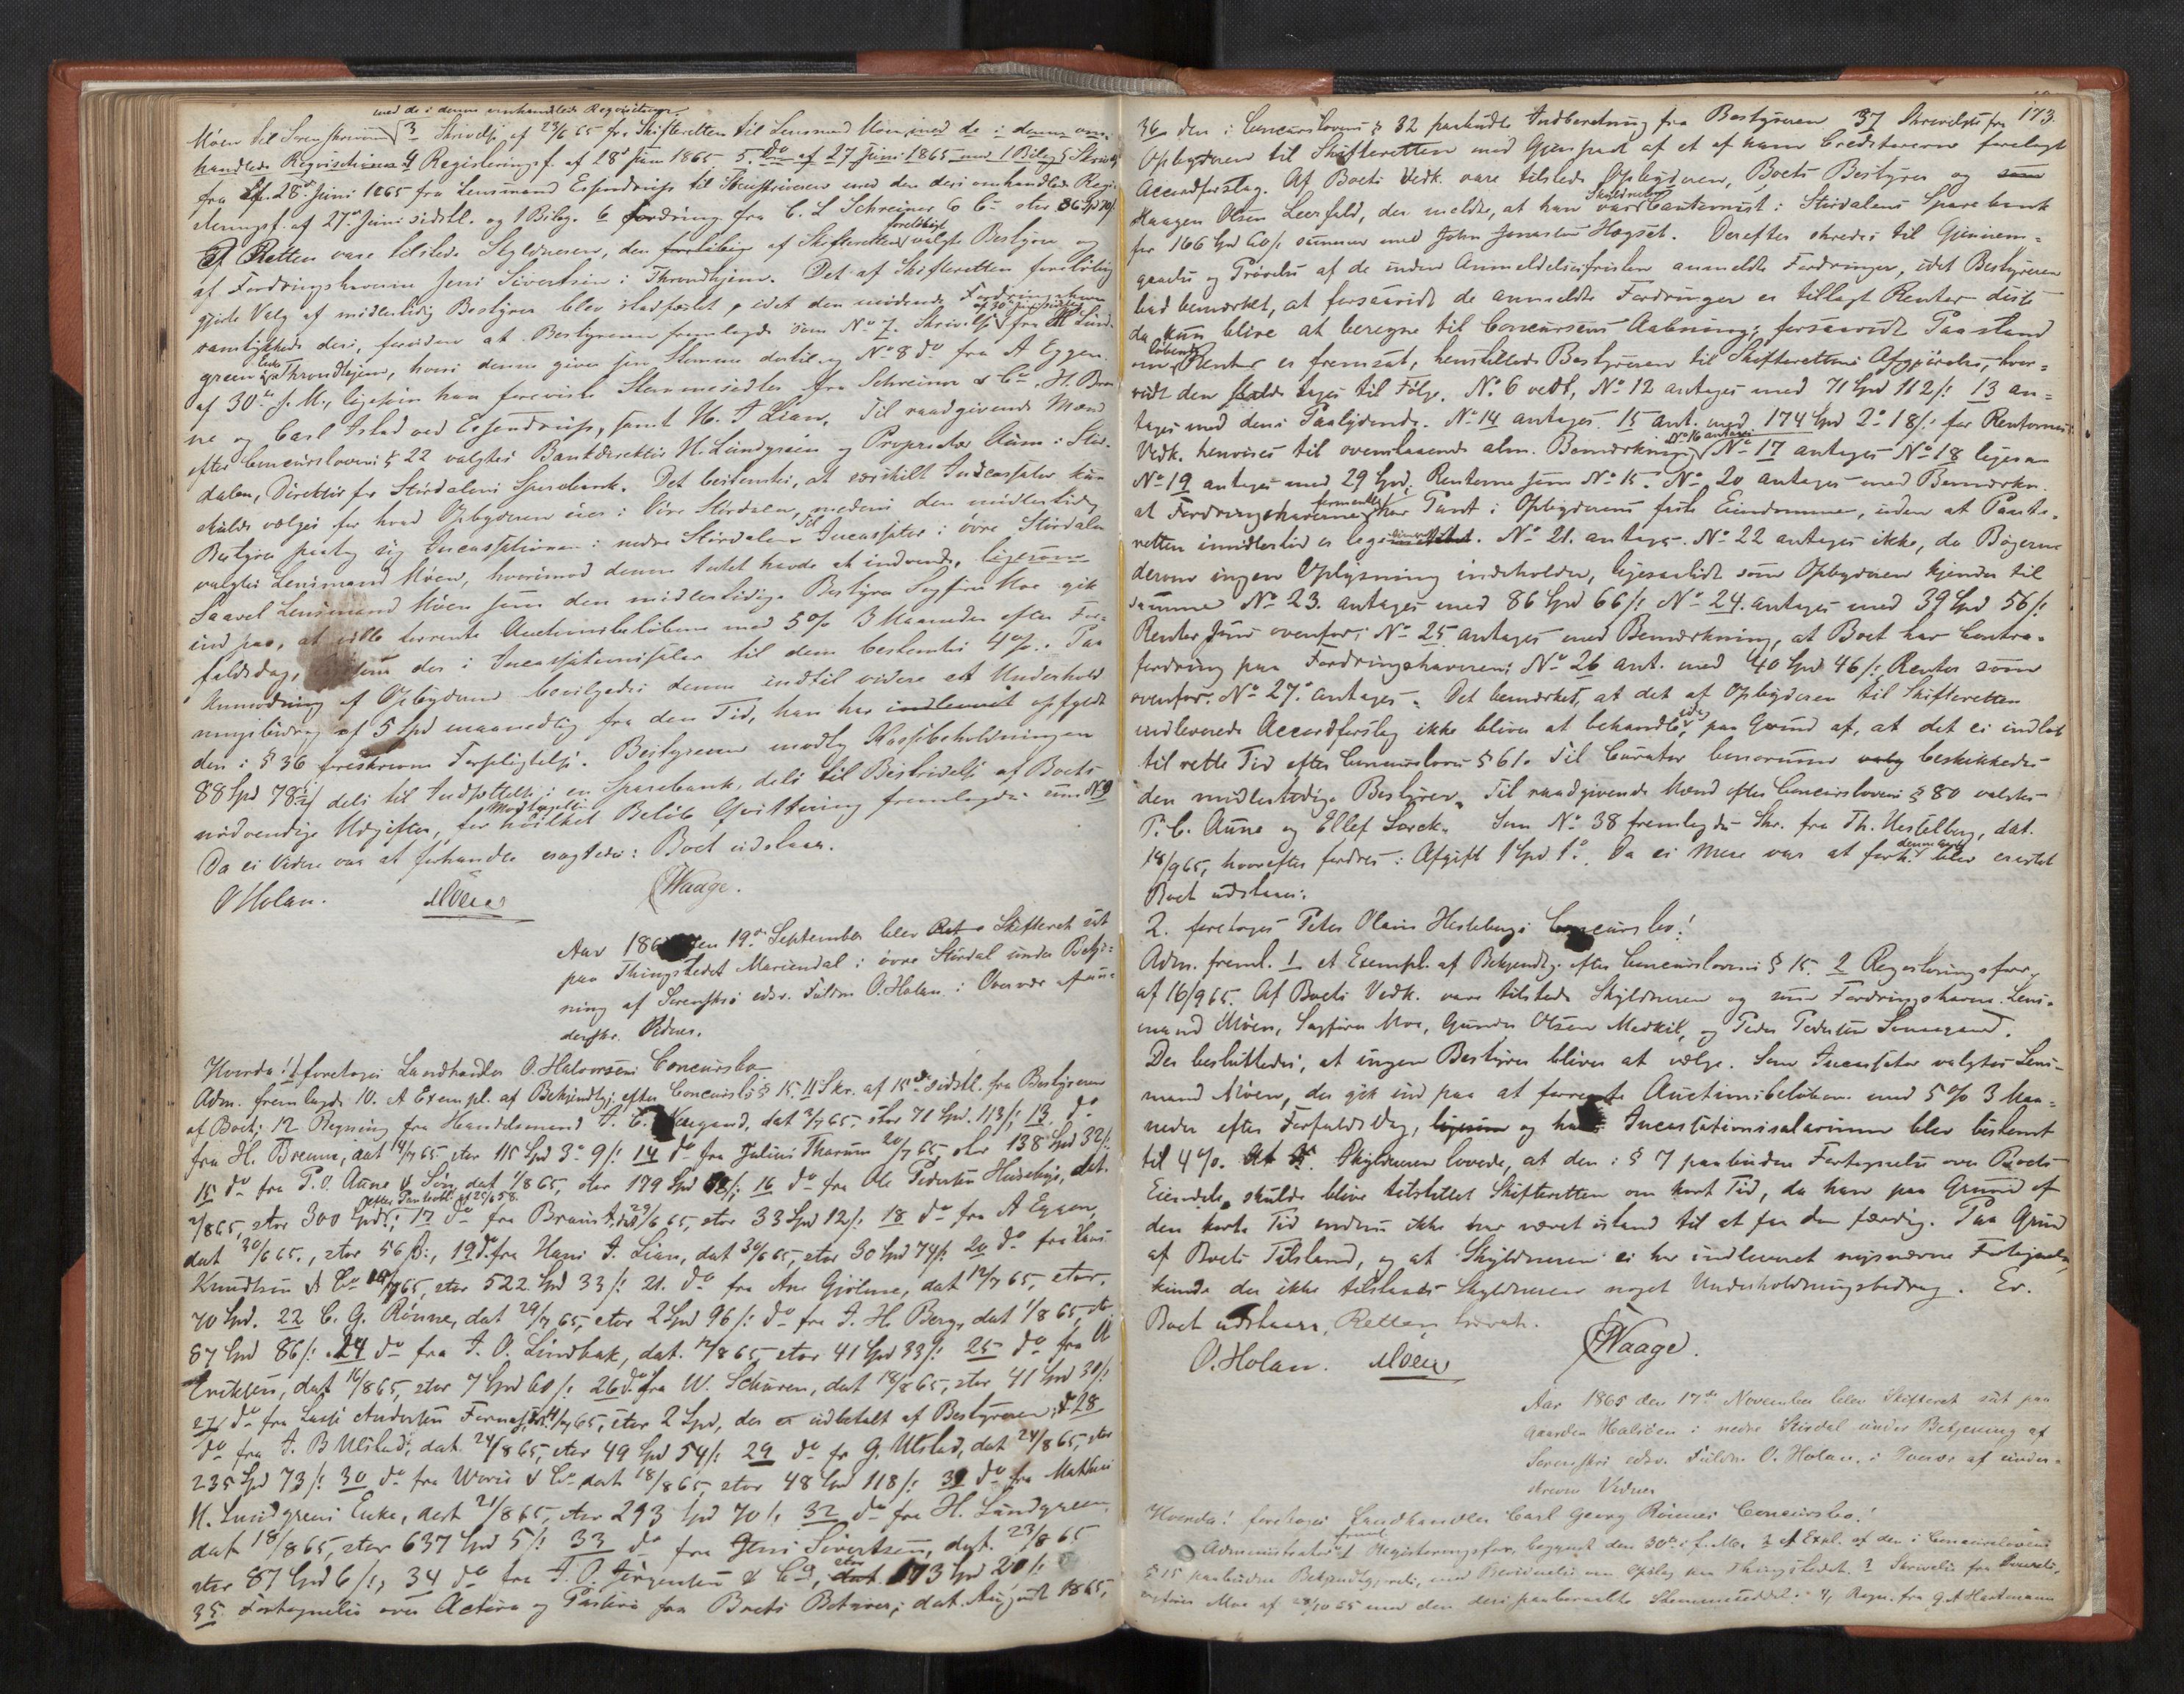 med de i denne omhandlede Reqvisitioner
Móen til Sorenskriveren 3 Skrivelse af 23/6 65 fra Skifteretten til Lensmand Móen med de i denne om-
handlede Reqvisitioner 4 Registeringsf. af 28de Juni 1865 5. Do af 27 Juni 1865 med 1 Bilag
fra 28de Juni 1865 fra Lensmand Essendrup til Skifteretten med den deri omhandlede Regi-
steringsf. af 27de Juni sidstl. og 1 Bilag. 6 fordring fra C. L Schreiner & Co stor 86 Spd
I Retten vare tilstede Skyldneren, den af Skifteretten foreløbigt valgte Bestyrer og
af Fordringshaverne Jens Sivertsen i Throndhjem. Det af Skifteretten foreløbig
gjorte Valg af midlertidig Bestyrer blev stadfæstet, idet den mødende Fordringshaver
samtykkede deri, foruden at Bestyreren fremlagde som No 7. Skrivelse fra H Lund-
green i Throndhjem, hvori denne giver sin Stemme dertil og No 8 do fra A Eggen
af 30te f. M., ligesom han foreviste Stemmesedler fra Schreiner & Co, H. Bren-
ne og Carl Islad ved Essendrup, samt H. J Lian. Til raadgivende Mænd
efter Concurslovens § 22 valgtes Bankdirektør H. Lundgreen og Proprietær Aune i Stør-
dalen, Direktør for Stördalens Sparebank. Det bestemtes, at særskilt Incassator skulde
vælges for hvad Opbyderen eier i övre Stördalen, medens den midlertidige
Bestyrer paatog sig Incassationen i nedre Stördalen Til Incassator i övre Stördalen
valgtes Lensmand Móen, hvorimod denne Intet havde at indvende, ligesom
Saavel Lensmand Móen som den midlertidige Bestyrer Sagfører Moe gik
ind paa, at ville forrente Auctionsbeløbene med 5% 3 Maaneder efter For-
faldsdag, der i Incassationssalær til dem bestemtes 4%. Paa
Anmodning af Opbyderen bevilgedes denne indtil videre et Underhold-
ningsbidrag af 5 Spd maanedlig fra den Tid, han har indleveret opfyldt
den i § 36 foreskrevne Forpligtelse. Bestyreren modtog Kassebeholdningen
88 Spd 78½ s dels til Indsættelse i en Sparebank, dels til Bestridelse af Boets
nødvendige Udgifter, for hvilket Beløb Qvittering fremlagdes som No 9
Da ei Videre var at forhandle eragtedes: Boet udstaar.
O Holan. Móen Waage.
Aar 1865 den 19de September blev Skifteret sat
paa Thingstedet Mariendal i övre Stördal under Betje-
ning af Sorenskr. edsv. Fuldm O. Holan i Overvær af un-
derskr. Vidner.
Hvorda! 1 foretoges Landhandler O. Halvorsens Concursbo
Adm. fremlagde 10. Et Exempl. af Bekjendtgj. efter Concursl. § 15. 11 Skr. af 15de sidstl. fra Bestyreren
af Boet; 12 Regning fra Handelsmand J. C. gaard, dat 3/7 65. stor 71 Spd. 113 s; 13 do
fra H. Brenne, dat 14/7 65 stor 115 Spd 3. 9 s 14 do fra Julius Thorum 20/7 65, stor 138 Spd 32 s.
15 do fra P. O. Aune & Søn, dat 1/8 65, stor 179 Spd s; 16 do fra Ole Pedersen Husebye, dat.
2/8 65, stor 300 Spd; efter Panteobl. af 25/6 58. 17 do fra Braun dat 29/6 65, stor 33 Spd 12 s; 18 do fra A Eggen,
dat 30/6 65., stor 56 s., 19 do fra Hans J. Lian, dat 30/6 65, stor 30 Spd 74 s. 20 do fra
Knudtzon & Co 65, stor 522 Spd 33 s: 21. do fra Ane Gjölme, dat 12/7 65, stor.
70 Spd. 22 C. G. Rönne, dat 29/7 65, stor 2 Spd 96 s: do fra J. H Berg, dat 1/8 65, st
87 Spd 86 s: 24 do fra J. O. Lindbak, dat. 12/8 65 stor 41 Spd 33 s: 25 do fra A
Eriksen, dat 16/8 65, stor 7 Spd 60 s: 26 do fra W. Schuren, dat 18/8 65, stor 41 Spd 30 s:
27 do fra Lasse Andersen Fornes, 65, stor 2 Spd, der er udbetalt af Bestyreren, 28
do fra J. B Ulstad, dat 24/8 65, stor 49 Spd 54 s: 29 do fr G. Ulstad, dat 24/8 65, stor
235 Spd 73 s: 30 do fra & Co dat 18/8 65, stor 48 Spd 118 s: 31 do fra Mathias
H. Lundgreens Enke, dat 21/8 65, stor 293 Spd 70 s. 32 do fra H. Lundgreen,
dat 18/8 65, stor 637 Spd 5 s: 33 do fra Jens Sivertsen, dat. 23/8 65
stor 87 Spd 6 s:, 34 do fra J. O. Jörgensen & Co, stor 173 Spd 20 s:
35 Fortegnelse over Activa og Passiva fra Boets Bestyrer; dat. August 1865,
173.
36 den i Concurslovens § 32 paabudte Indberetning fra Bestyreren 37 Skrivelse fra
Opbyderen til Skifteretten med Gjenpart af et af ham Creditorerne forelagt
Accordforslag. Af Boets Vedk. vare tilstede Opbyderen, Boets Bestyrer og som
Haagen Olsen Leerfald, der meldte, at han var Skyldner Cautionist i Stördalens Sparebank
for 166 Spd 60 s sammen med John Jonassen Hogset. Derefter skredes til Gjennem-
gaaelse og Prøvelse af de inden Anmeldelsesfristen anmeldte Fordringer, idet Bestyreren
bad bemærket, at forsaavidt de anmeldte Fordringer er tillagt Renter disse
da kun blive at beregne til Concursens Aabning; forsaavidt Paastand
om løbende Renter er fremsat, henstillede Bestyreren til Skifterettens Afgjørelse, hvor-
vidt den skulde tages til Følge. No 6 vedt, No 12 antages med 71 Spd 112 s: 13 an-
tages med dens Paalydende. No 14 antages. 15 ant. med 174 Spd 2. 18 s: for Renternes
Vedk. henvises til ovenstaaende alm. Bemærkning No 16 antages No 17 antages No 18 ligesaa
No 19 antages med 29 Spd; Renterne som No 15. No 20 antages med Bemærkn.
at Fordringshaverne formentlig har Pant i Opbyderens faste Eiendomme, uden at Pante-
retten imidlertid er . No 21. antages. No 22 antages ikke, da Bøgerne
derom ingen Oplysning indeholder, ligesaalidt som Opbyderen kjender til
samme No 23. antages med 86 Spd 66 s: No 24. antages med 39 Spd 56 s:
Renter som ovenfor; No 25 antages med Bemærkning, at Boet har Contra-
fordring paa Fordringshaveren; No 26 ant. med 40 Spd 46 s; Renter som
ovenfor. No 27. antages. Det bemærkes, at det af Opbyderen til Skifteretten
indleverede Accordforslag ikke bliver at behandle, paa Grund af, at det ei indkom
til rette Tid efter Concurslovens § 61. Til Curator bonorum valg beskikkedes
den midlertidige Bestyrer. Til raadgivende Mænd efter Concurslovens § 80 valgtes
P. C. Aune og Ellef Lorck. Som No 38 fremlagdes Skr. fra Th. Hestelberg, dat.
18/9 65, hvorefter fordres i Afgift 1 Spd 1. Da ei Mere var at forh. blev eragtet
Boet udstaar.
2. foretoges Peter Olaus Heslebergs Concursbo!
Adm. freml. 1 et Exempl. af Bekjendtg. efter Concurslovens § 15. 2 Registeringsforr.
af 16/9 65. Af Boets Vedk. vare tilstede Skyldneren og som Fordringshaver Lens-
mand Móen, Sagfører Moe, Gunder Olsen Medkil, og Peder Pedersen .
Der besluttedes, at ingen Bestyrer bliver at vælge. Som Incassator valgtes Lens-
mand Móen, der gik ind paa at forrente Auctionsbeløbene med 5% 3 Maa-
neder efter Forfaldsdag, ligesom og hans Incassationssalarium blev bestemt
til 4%. Skyldneren lovede, at den i § 7 paabudne Fortegnelse over Boets
Eiendele skulde blive tilstillet Skifteretten om kort Tid, da han paa Grund af
den korte Tid endnu ikke har været istand til at faa den færdig. Paa Grund
af Boets Tilstand, og at Skyldneren ei har indleveret nysnævnte Fortegnelse,
kunde der ikke tilstaaes Skyldneren noget Underholdningsbidrag. Er.
Boet udstaar, Retten hævet.
O. Holan. Móen Waage.
Aar 1865 den 17de November blev Skifteret sat paa
Gaarden Halsöen i nedre Stördal under Betjening af
Sorenskr. edsv. Fuldm. O. Holan, i Overvær af under-
skrevne Vidner
Hvorda! foretoges Landhandler Carl Georg Rönnes Concursbo!
Administrator freml. 1 Registeringsforr. begyndt den 30te f. M. 2 Et Expl. af den i Concurslovens
§ 15 paabudne Bekjendtgjørelse, med Bevidnelse om Opslag paa Thingstedet. 3 Skrivelse fra
Moe af 28/10 65 med den deri paaberaabte Stemmeseddel: 4, Regn. fra G. A Hartmann